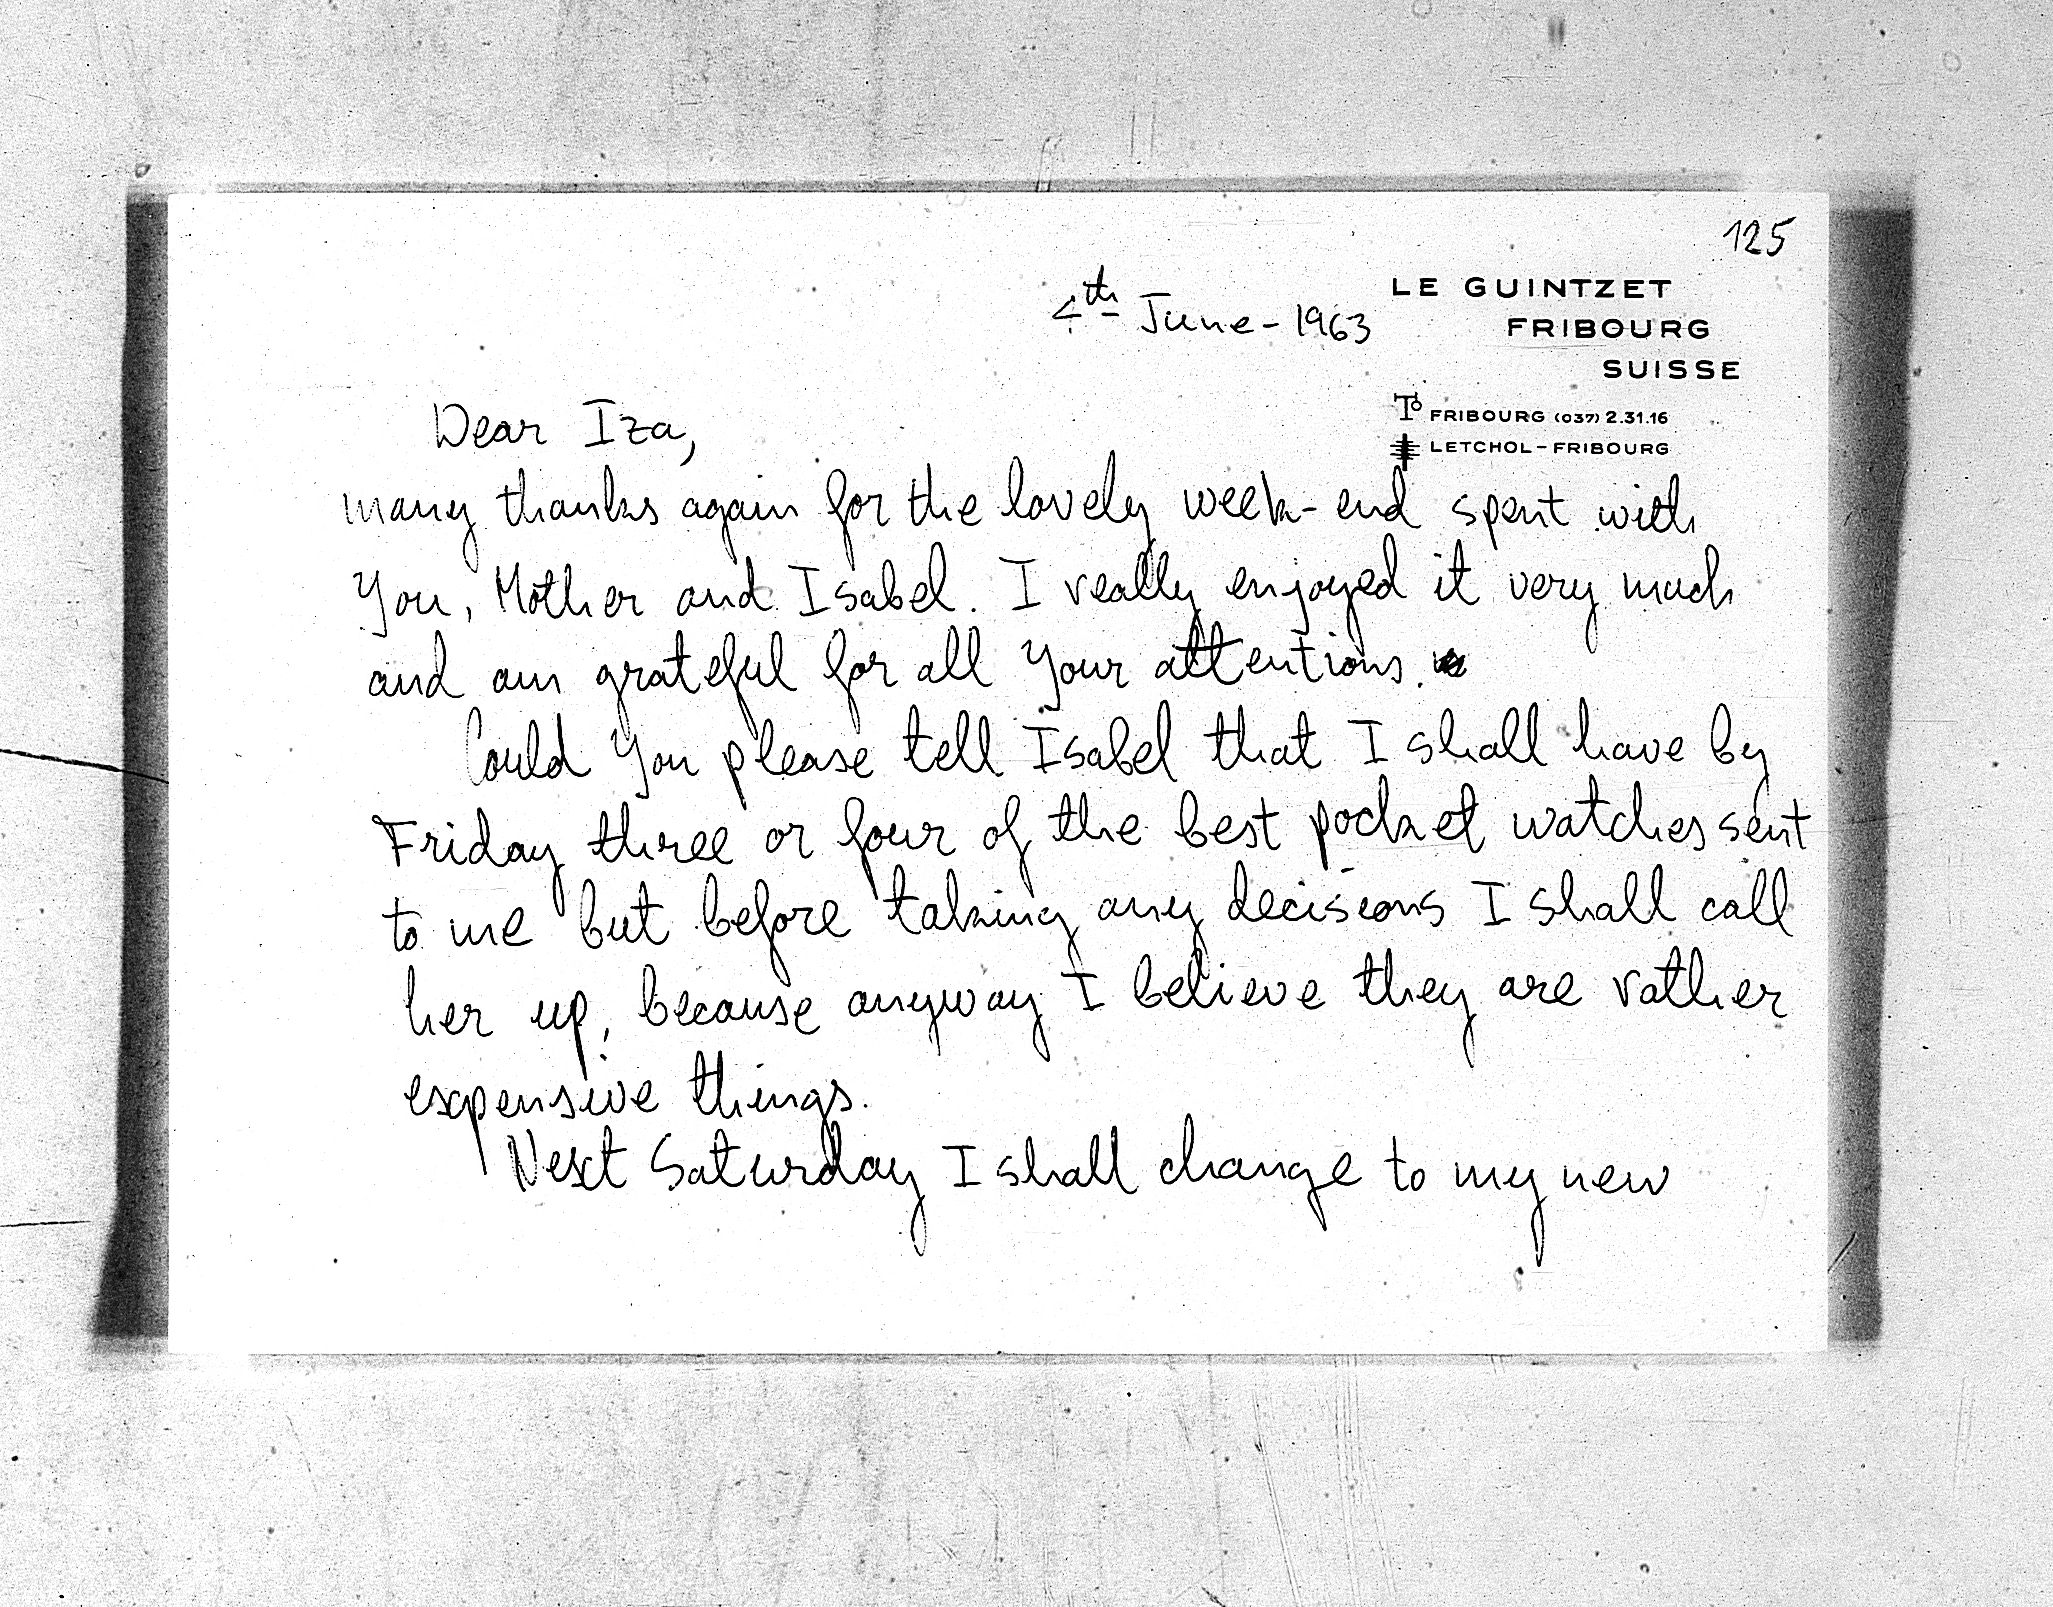 125
LE GUINTZET
FRIBOURG
SUISSE
4th June - 1963
FRIBOURG (037) 2.31.16
LETCHOL - FRIBOURG
Dear Iza,
many thanks again for the lovely week-end spent with
You, Mother and Isabel. I really enjoyed it very much
and am grateful for all Your attentions.
Could You please tell Isabel that I shall have by
Friday three or four of the best pocket watches sent
to me but before taking any decisions I shall call
her up, because anyway I believe they are rather
expensive things.
Next Saturday I shall change to my new